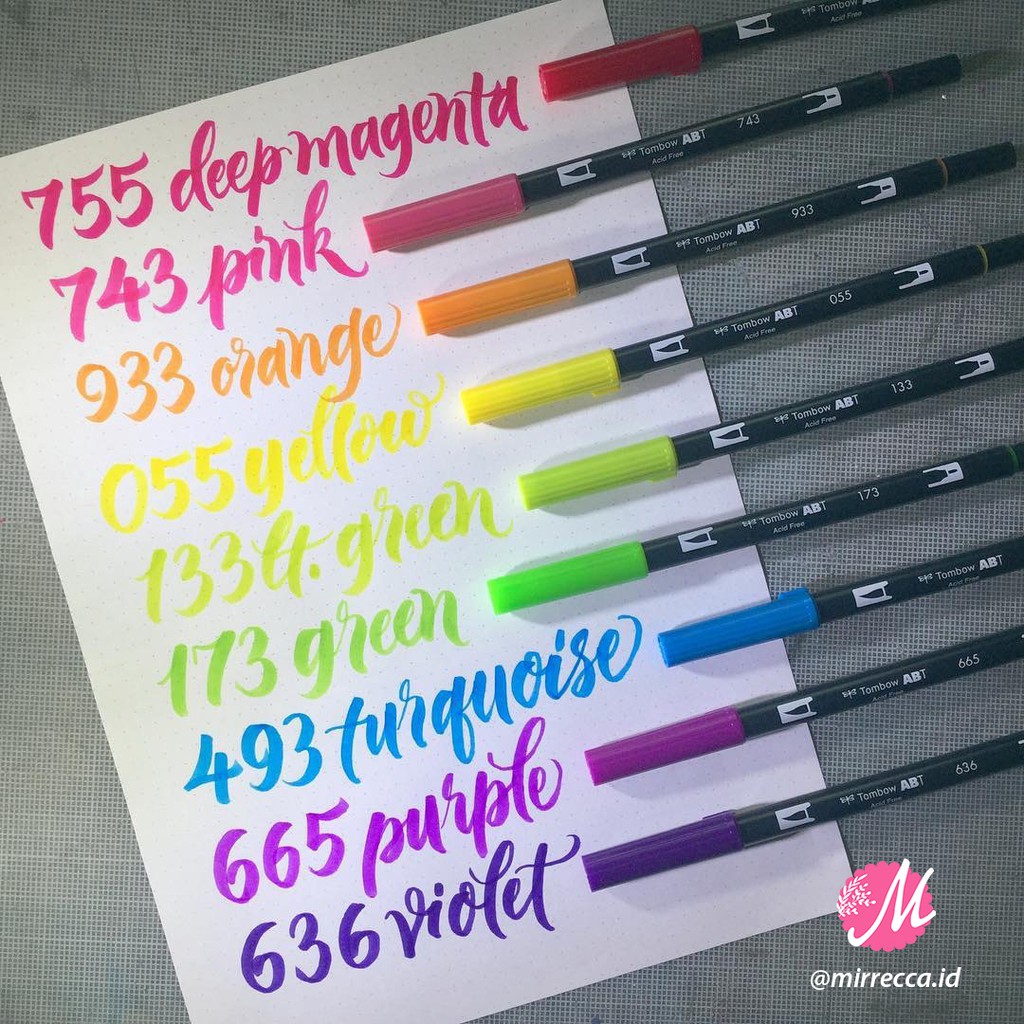 755 deep magenta
743 pink
933 orange
055 yellow
133 lt. green
173 green
493 turquoise
665 purple
636 violet
Tombow ABT
Acid Free
Tombow ABT 743
Acid Free
Tombow ABT 933
Acid Free
Tombow ABT 055
Acid Free
Tombow ABT 133
Acid Free
Tombow ABT 173
Acid Free
Tombow ABT
Acid Free
Tombow ABT 665
Acid Free
Tombow ABT 636
Acid Free
M
@mirrecca.id